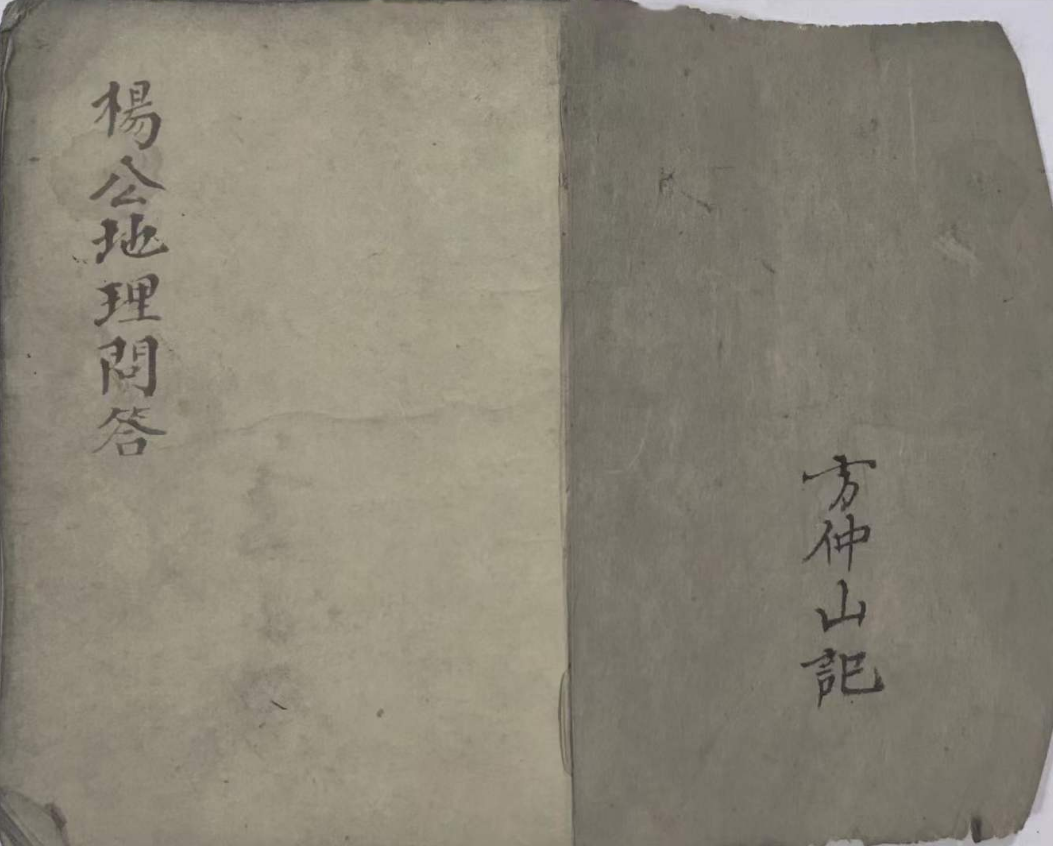 方仲山記
楊公地理問答